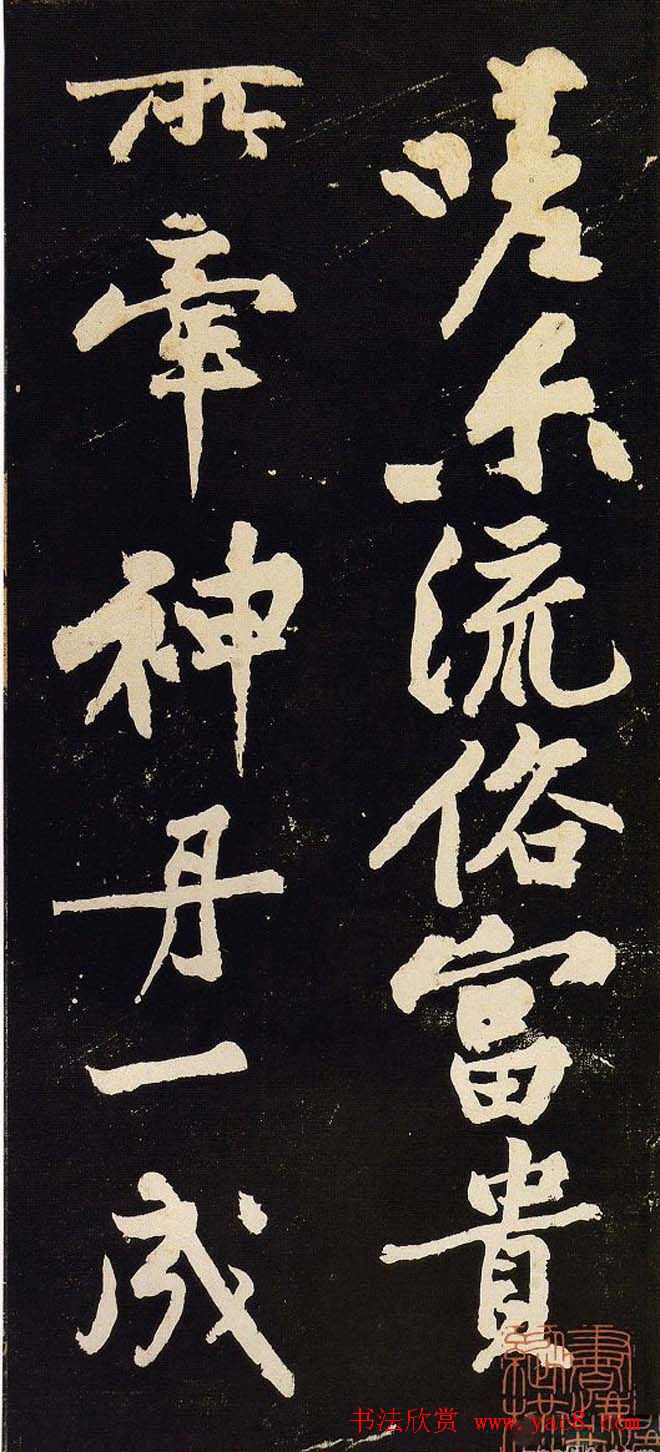 嗟尔流俗富貴
所牽神丹一成
书法欣赏 www.yac8.com